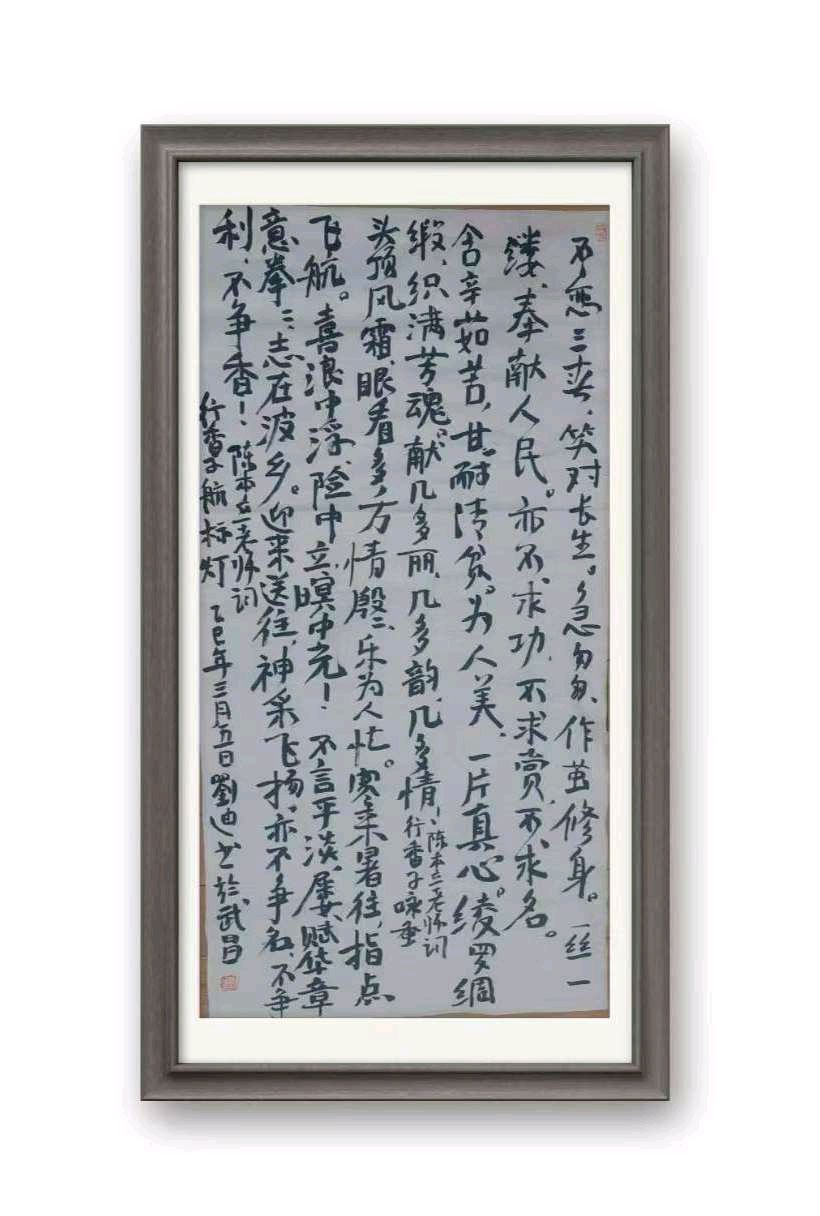 不恋三春、笑对长生。急匆匆、作茧修身。一丝一
缕、奉献人民。亦不求功、不求赏、不求名。
含辛茹苦，甘耐清贫。为人美、一片真心。绫罗绸
缎、织满芳魂。献几多丽、几多韵、几多情！
行香子咏蚕
陈本立老师词
头顶风霜、眼看多方情殷々、乐为人忙。寒来暑往、指点
飞航。喜浪中浮、险中立、暝中亮！不言平淡、屡赋华章
意拳々、志在波乡。迎来送往、神采飞扬。亦不争名、不争
利、不争香！
陈本立老师词
行香子航标灯 乙巳年三月五日劉迪书於武昌